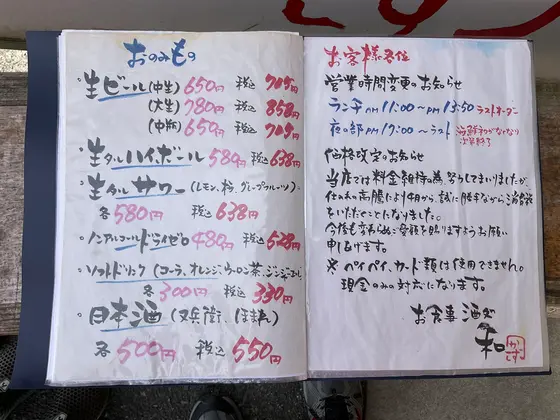 おのみもの
・生ビール(中生) 650円 税込 705円
(大生) 780円 税込 858円
(中瓶) 650円 税込 705円
・生タルハイボール 580円 税込 638円
・生タルサワー(レモン、柃、グレープフルーツ)
各580円 税込 638円
・ノンアルコールドライゼロ 480円 税込 528円
・ソフトドリンク(コーラ、オレンジ、ウーロン茶、ジンジャエール)
各300円 税込 330円
・日本酒(又兵衛、ほまれ)
各500円 税込 550円
お客様各位
営業時間変更のお知らせ
ランチAM 11:00〜PM 13:50 ラストオーダー
夜の部PM 17:00〜ラスト 海鮮物がなくなり
次第終了
価格改定のお知らせ
当店では料金維持の為、努力してまいりましたが、
仕入れの高騰により4月から、誠に勝手ながら消費税
をいただくことになりました。
今後も変わらぬご愛顧を賜りますようお願い
申し上げます。
※ペイペイ、カード類は使用できません。
現金のみの対応になります。
お食事酒処
和
かず